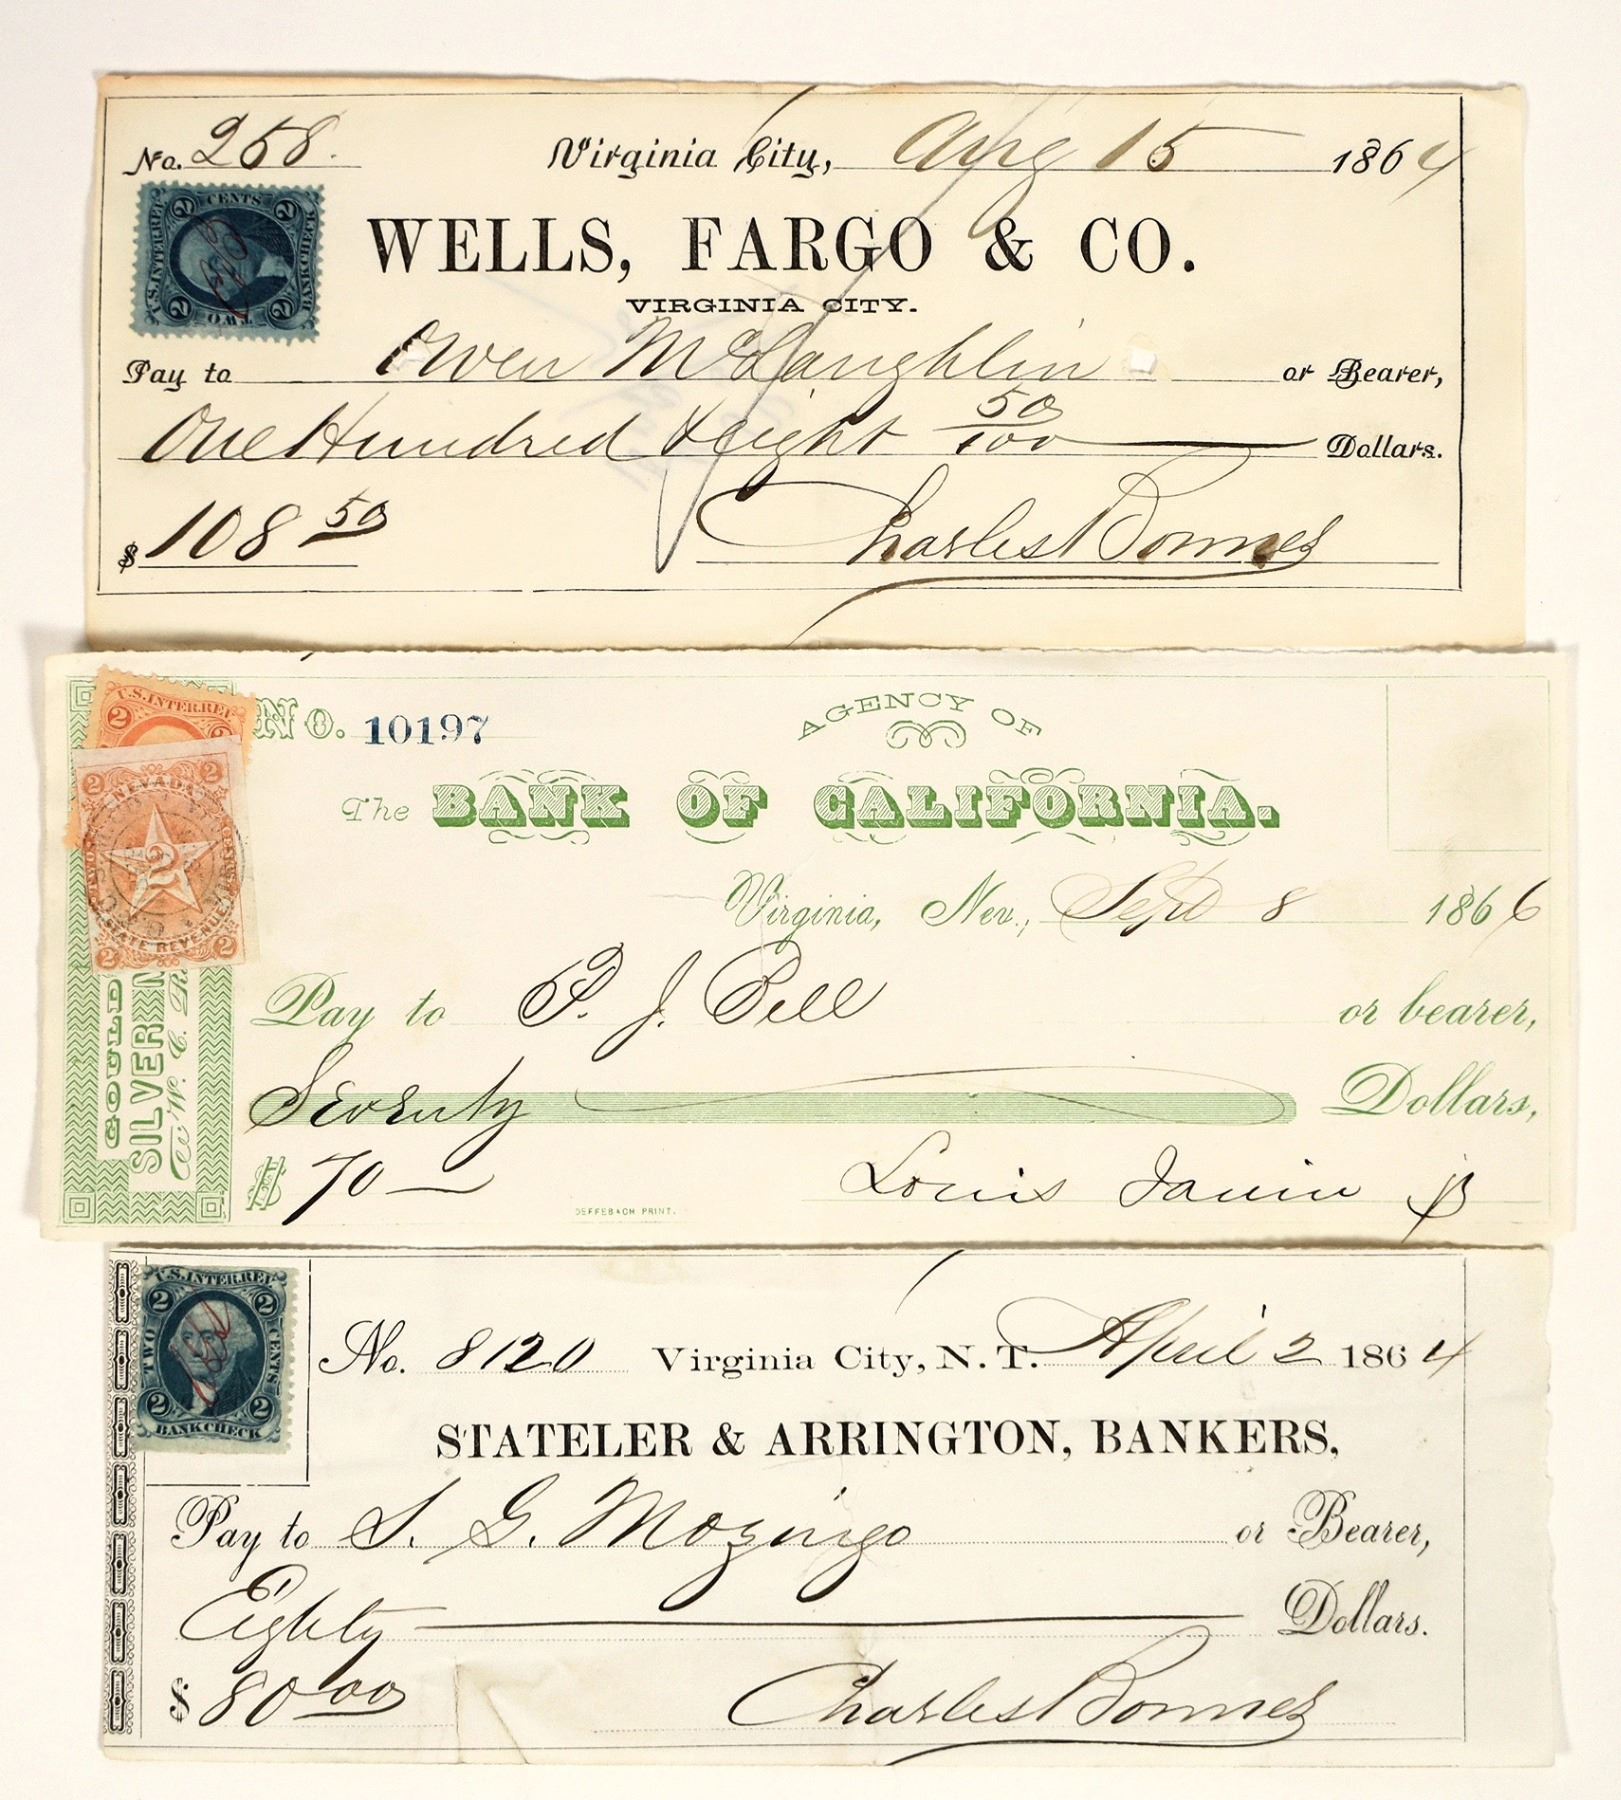 No. 258. Virginia City, Aug 15 1864
U.S. INTER. REV.
2 CENTS 2
BANK CHECK
2 TWO 2
WELLS, FARGO & CO.
VIRGINIA CITY.
Pay to Owen McLaughlin or Bearer,
One Hundred & Eight 50/100 Dollars.
$ 108 50
Charles Bonner
U.S. INTER. REV.
2
NO. 10197
AGENCY OF
The BANK OF CALIFORNIA.
2 NEVADA 2
TWO
2
STATE REVENUE
2 2
Virginia, Nev., Sept 8 1866
Pay to P. J. Bell or bearer,
Seventy Dollars,
$ 70
Louis Janin Jr
GOULD
SILVER
DEFFEBACH PRINT.
U.S. INTER. REV.
2 2
TWO CENTS
2 2
BANK CHECK
No. 8120 Virginia City, N. T. April 2 1864
STATELER & ARRINGTON, BANKERS,
Pay to S. G. Mozingo or Bearer,
Eighty Dollars.
$ 80 00
Charles Bonner